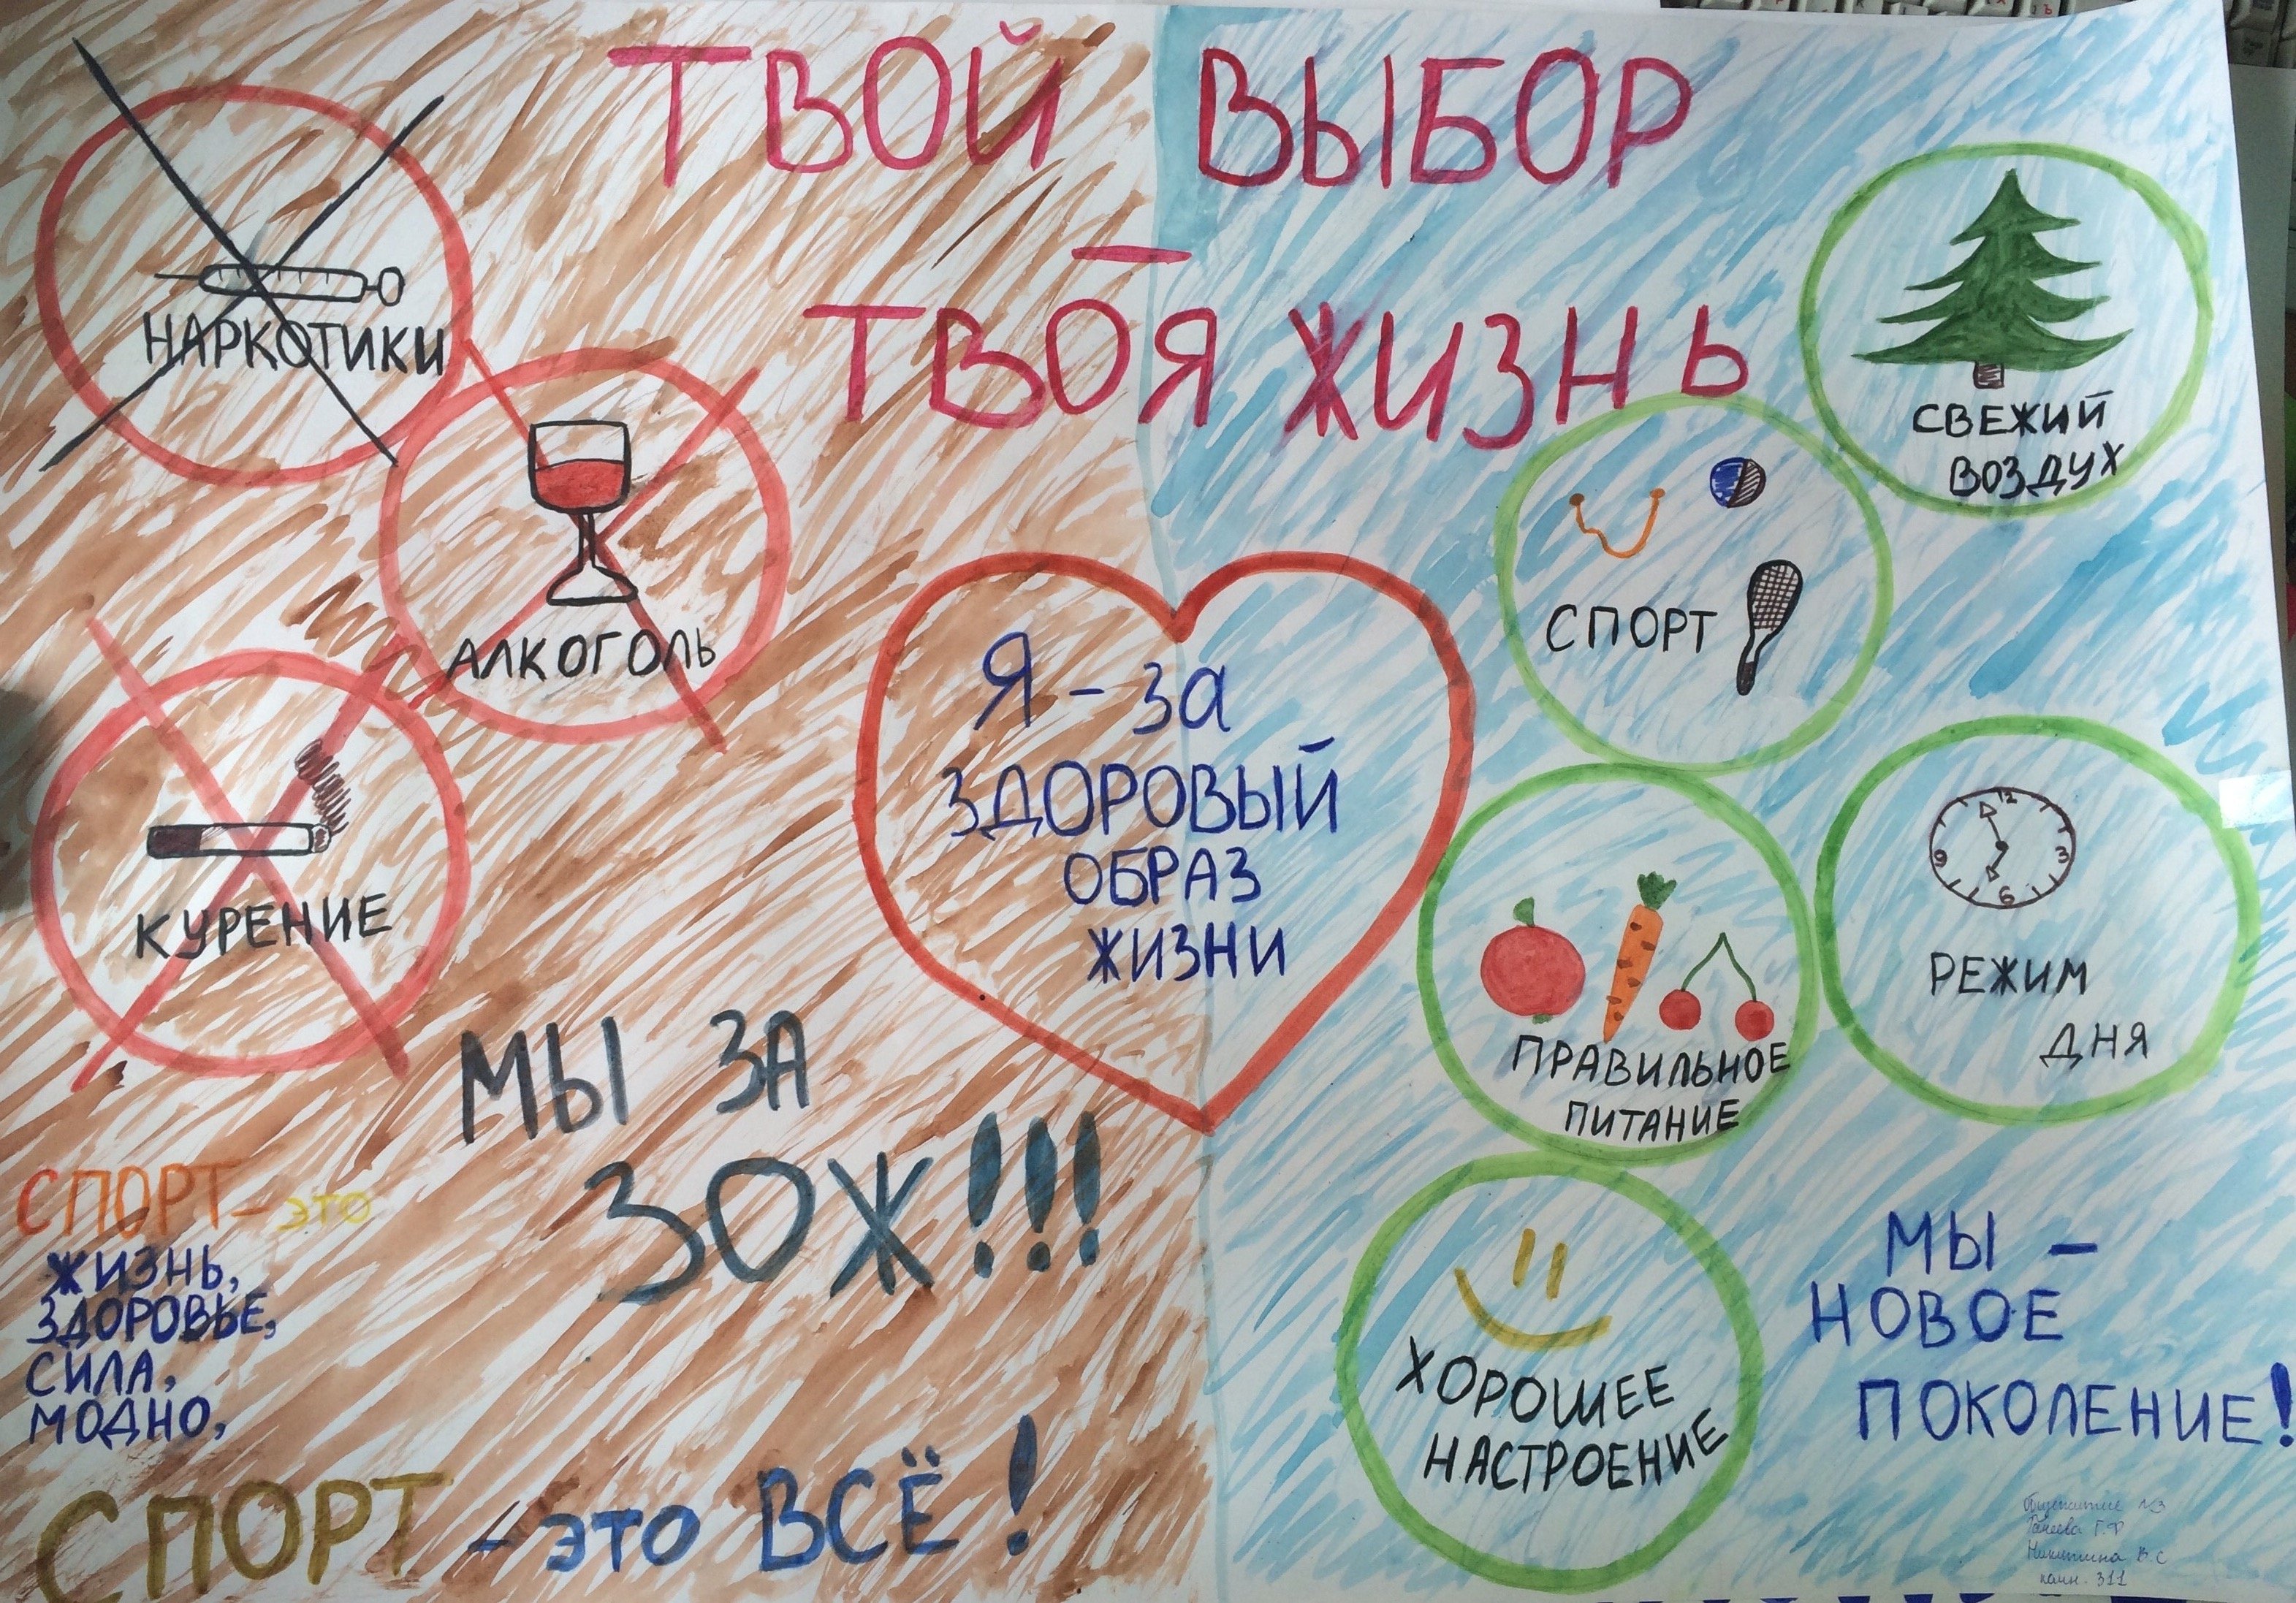 ТВОЙ ВЫБОР
—
ТВОЯ ЖИЗНЬ
НАРКОТИКИ
АЛКОГОЛЬ
КУРЕНИЕ
Я - за
ЗДОРОВЫЙ
ОБРАЗ
ЖИЗНИ
СВЕЖИЙ
ВОЗДУХ
СПОРТ
12
3
6
9
РЕЖИМ
ДНЯ
ПРАВИЛЬНОЕ
ПИТАНИЕ
ХОРОШЕЕ
НАСТРОЕНИЕ
МЫ ЗА
ЗОЖ!!!
СПОРТ - это
ЖИЗНЬ,
ЗДОРОВЬЕ,
СИЛА,
МОДНО,
СПОРТ - это ВСЁ!
МЫ -
НОВОЕ
ПОКОЛЕНИЕ!
Общежитие №3
Г.Ф
Никитина В.С
комн. 311